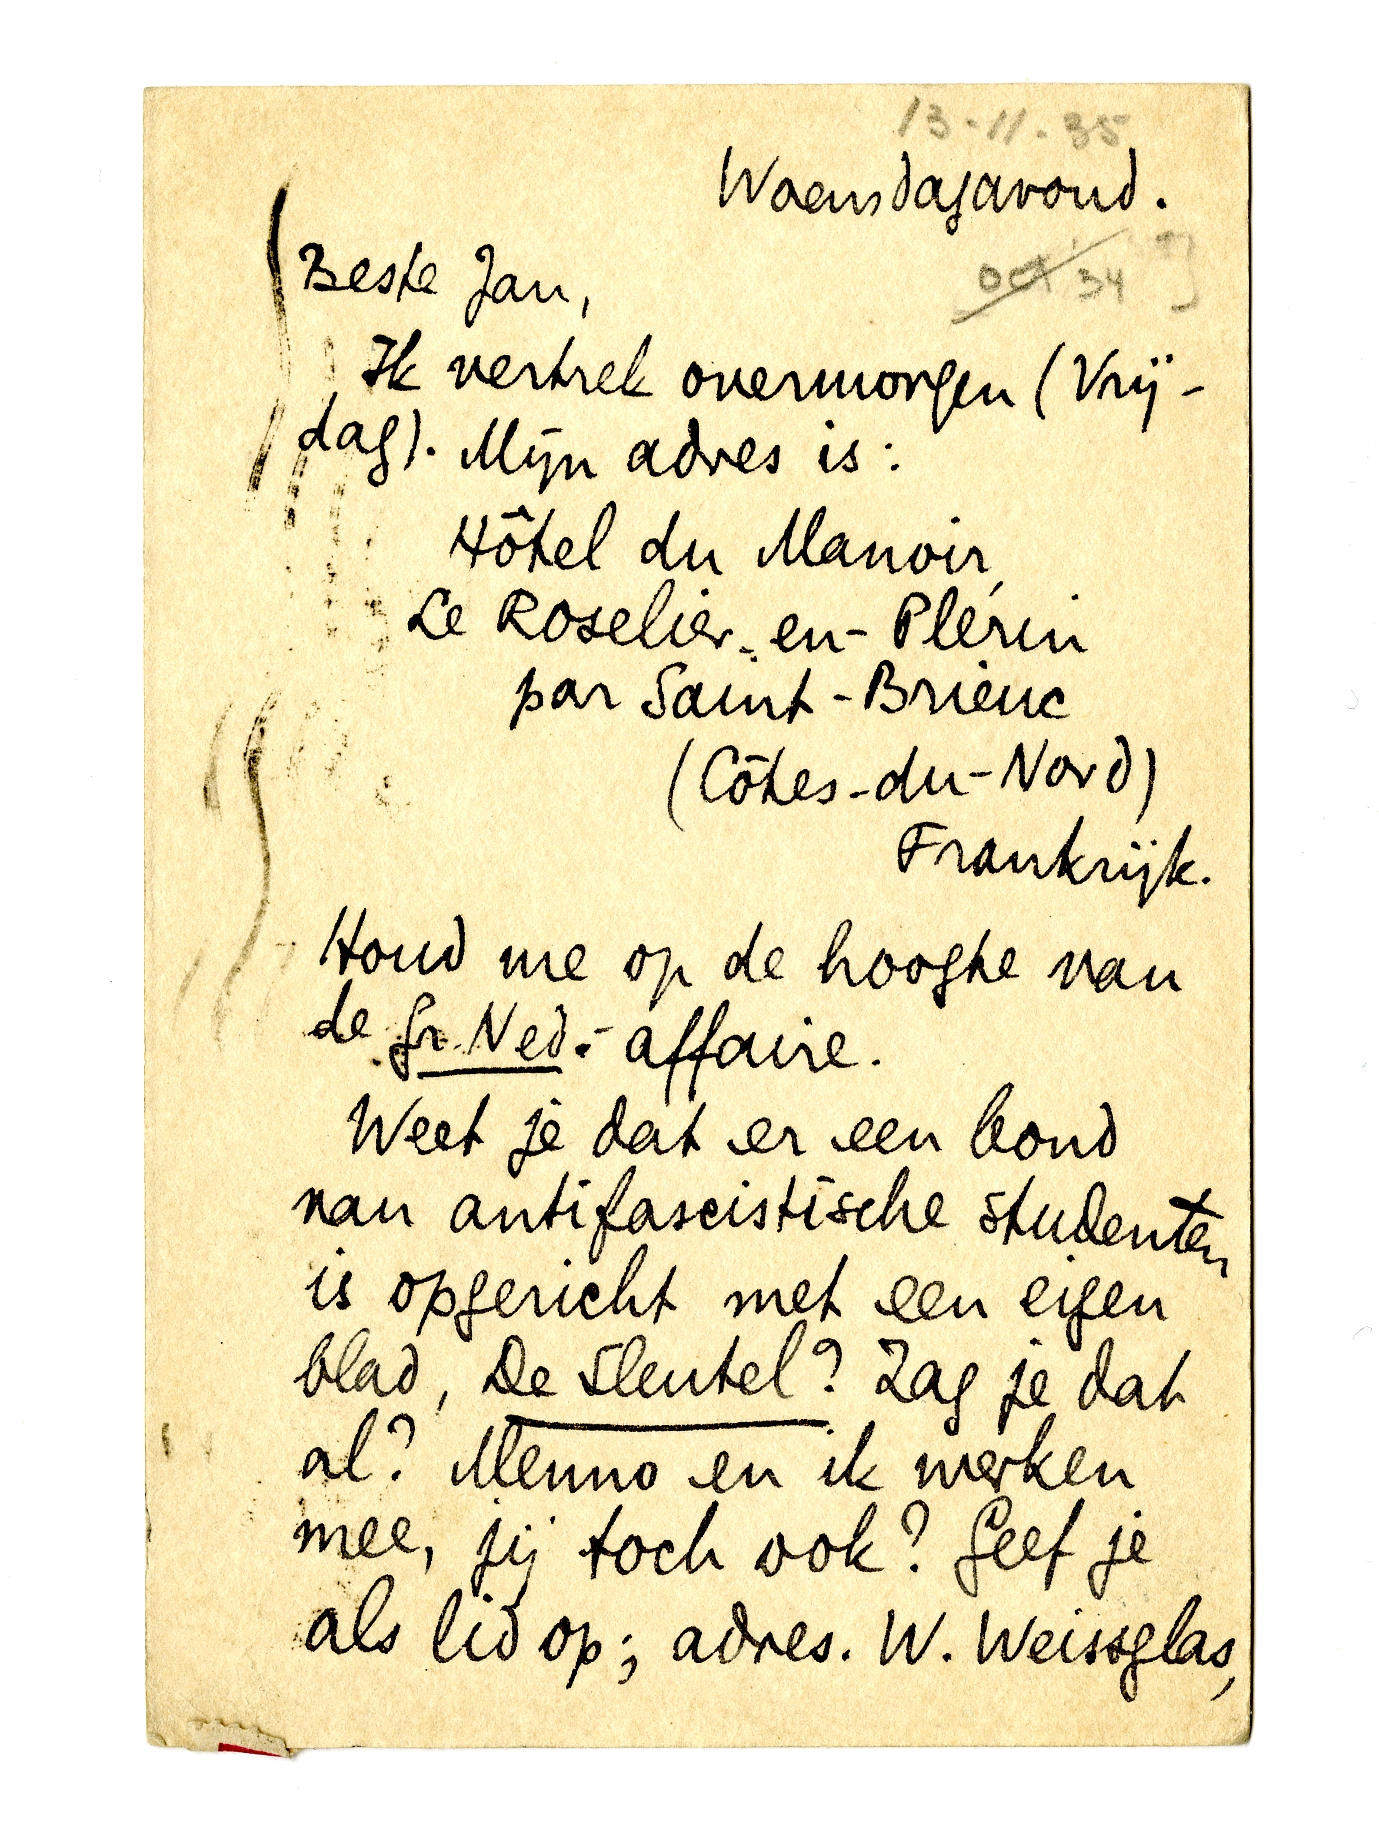 13-11-35
Woensdagavond.
Oct 34 ?]
Beste Jan,
Ik vertrek overmorgen (Vrij-
dag). Mijn adres is:
Hôtel du Manoir,
Le Roselier-en-Plérin
par Saint-Brieuc
(Côtes-du-Nord)
Frankrijk.
Houd me op de hoogte van
de Gr. Ned.-affaire.
Weet je dat er een bond
van antifascistische studenten
is opgericht met een eigen
blad, De Sleutel? Zag je dat
al? Menno en ik werken
mee, jij toch ook? Geef je
als lid op; adres. W. Weissglas,